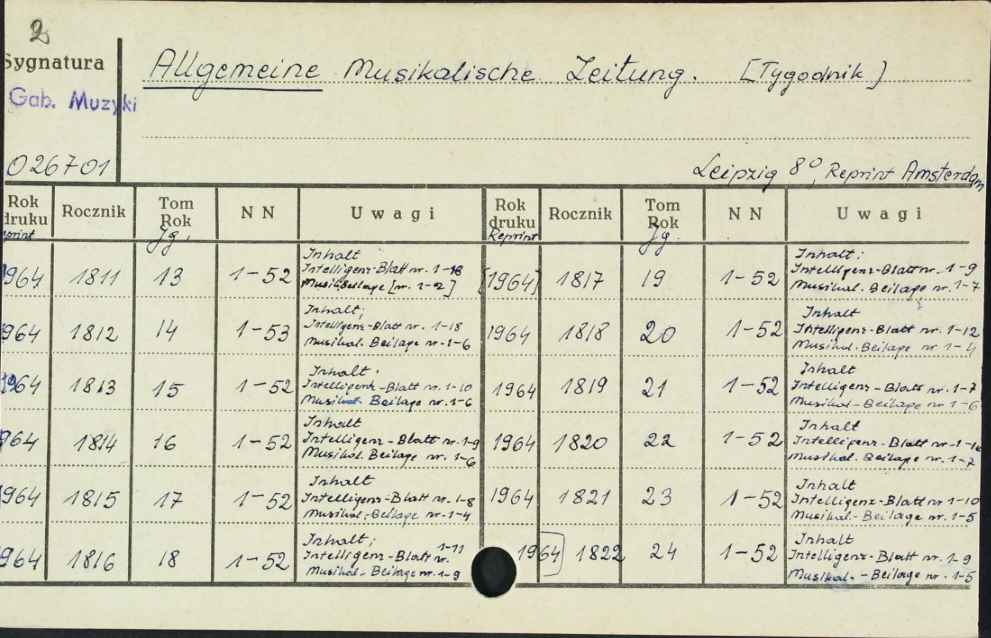 2
Sygnatura
Gab. Muzyki
026701
Allgemeine Musikalische Zeitung. [Tygodnik]
Leipzig 8°, Reprint Amsterdam
Rok druku Rocznik Tom Rok N N Uwagi Rok druku Rocznik Tom Rok N N Uwagi
Reprint Jg. Reprint Jg.
1964 1811 13 1-52 Inhalt
Intelligenz-Blatt nr. 1-18
Musik. Beilage [nr. 1-2]
1964 1812 14 1-53 Inhalt;
Intelligenz-Blatt nr. 1-18
Musikal. Beilage nr. 1-6
1964 1813 15 1-52 Inhalt.
Intelligenz-Blatt nr. 1-10
Musikal. Beilage nr. 1-6
1964 1814 16 1-52 Inhalt
Intelligenz-Blatt nr. 1-9
Musikal. Beilage nr. 1-6
1964 1815 17 1-52 Inhalt
Intelligenz-Blatt nr. 1-8
Musikal.-Beilage nr. 1-4
1964 1816 18 1-52 Inhalt;
Intelligenz-Blatt nr. 1-11
Musikal-Beilage nr. 1-9
[1964] 1817 19 1-52 Inhalt:
Intelligenz-Blatt nr. 1-9
Musikal. Beilage nr. 1-7
1964 1818 20 1-52 Inhalt
Intelligenz-Blatt nr. 1-12
Musikal. Beilage nr 1-4
1964 1819 21 1-52 Inhalt
Intelligenz-Blatt nr. 1-7
Musikal-Beilage nr 1-6
1964 1820 22 1-52 Inhalt
Intelligenz-Blatt nr.
Musikal. Beilage nr. 1-7
1964 1821 23 1-52 Inhalt
Intelligenz-Blatt nr 1-10
Musikal.-Beilage nr. 1-5
1964] 1822 24 1-52 Inhalt
Intelligenz-Blatt nr. 1-9
Musikal.-Beilage nr. 1-5